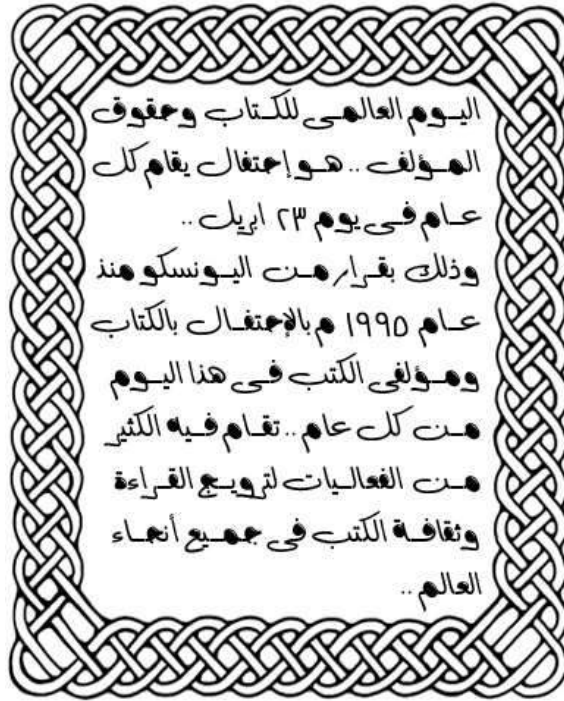 اليوم العالمى للكتاب وحقوق
المؤلف .. هو إحتفال يقام كل
عام فى يوم ٢٣ ابريل ..
وذلك بقرار من اليونسكو منذ
عام ١٩٩٥ م بالإحتفال بالكتاب
ومؤلفى الكتب فى هذا اليوم
من كل عام .. تقام فيه الكثير
من الفعاليات لترويج القراءة
وثقافة الكتب فى جميع أنحاء
العالم ..